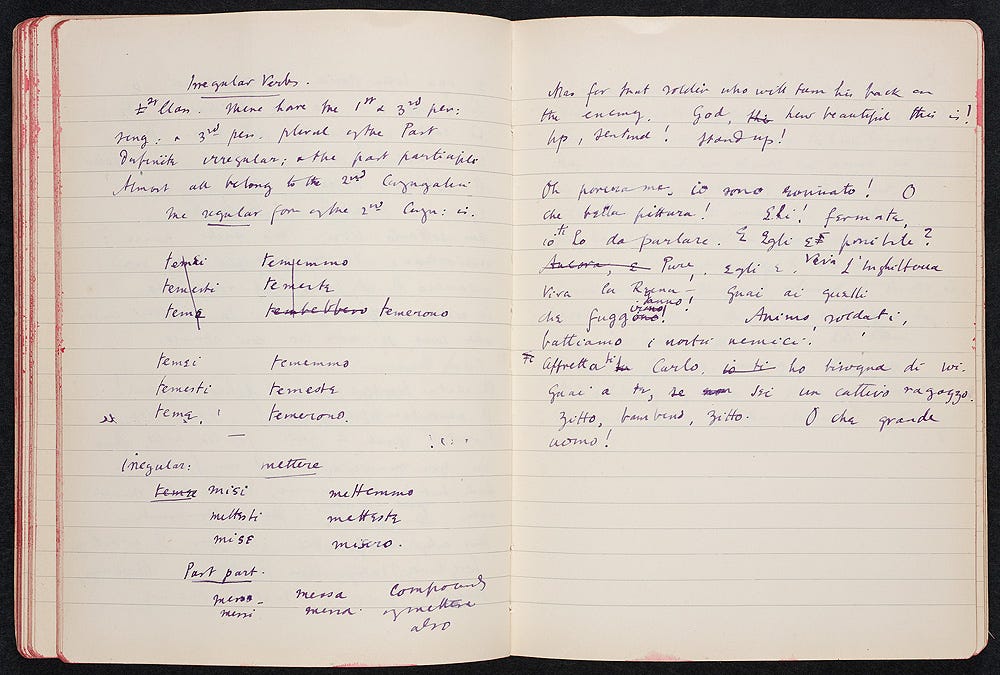 Irregular Verbs.
Ist Class. These have the 1st & 3rd per:
sing: & 3rd pers. plural of the Past
Definite irregular; & the past participle
Almost all belong to the 2nd Conjugation
The regular form of the 2nd Conju: is.
temei tememmo
temesti temeste
teme temerono
temei tememmo
temesti temeste
teme, temerono.
Irregular: mettere
teme misi mettemmo
mettesti metteste
mise misero.
Past part.
messo messa compounds
messi messa. of mettere
also
Alas for that soldier who will turn his back on
the enemy. God, this how beautiful this is!
Up, Sentinel! Stand up!
Oh povera me, io sono rovinato! O
che bella pittura! Ehi! fermate,
io ti ho da parlare. E Egli è possibile?
Ancora, E Pure, Egli è. Viva L'Inghilterra
Viva la Regina – Guai ai quelli
che fuggono! anno!
Animo, soldati,
battiamo i nostri nemici.!
Affretta ti Carlo, io ti ho bisogna di voi.
Guai a te, se non sei un cattivo ragazzo.
Zitto, bambino, zitto. O che grande
uomo!